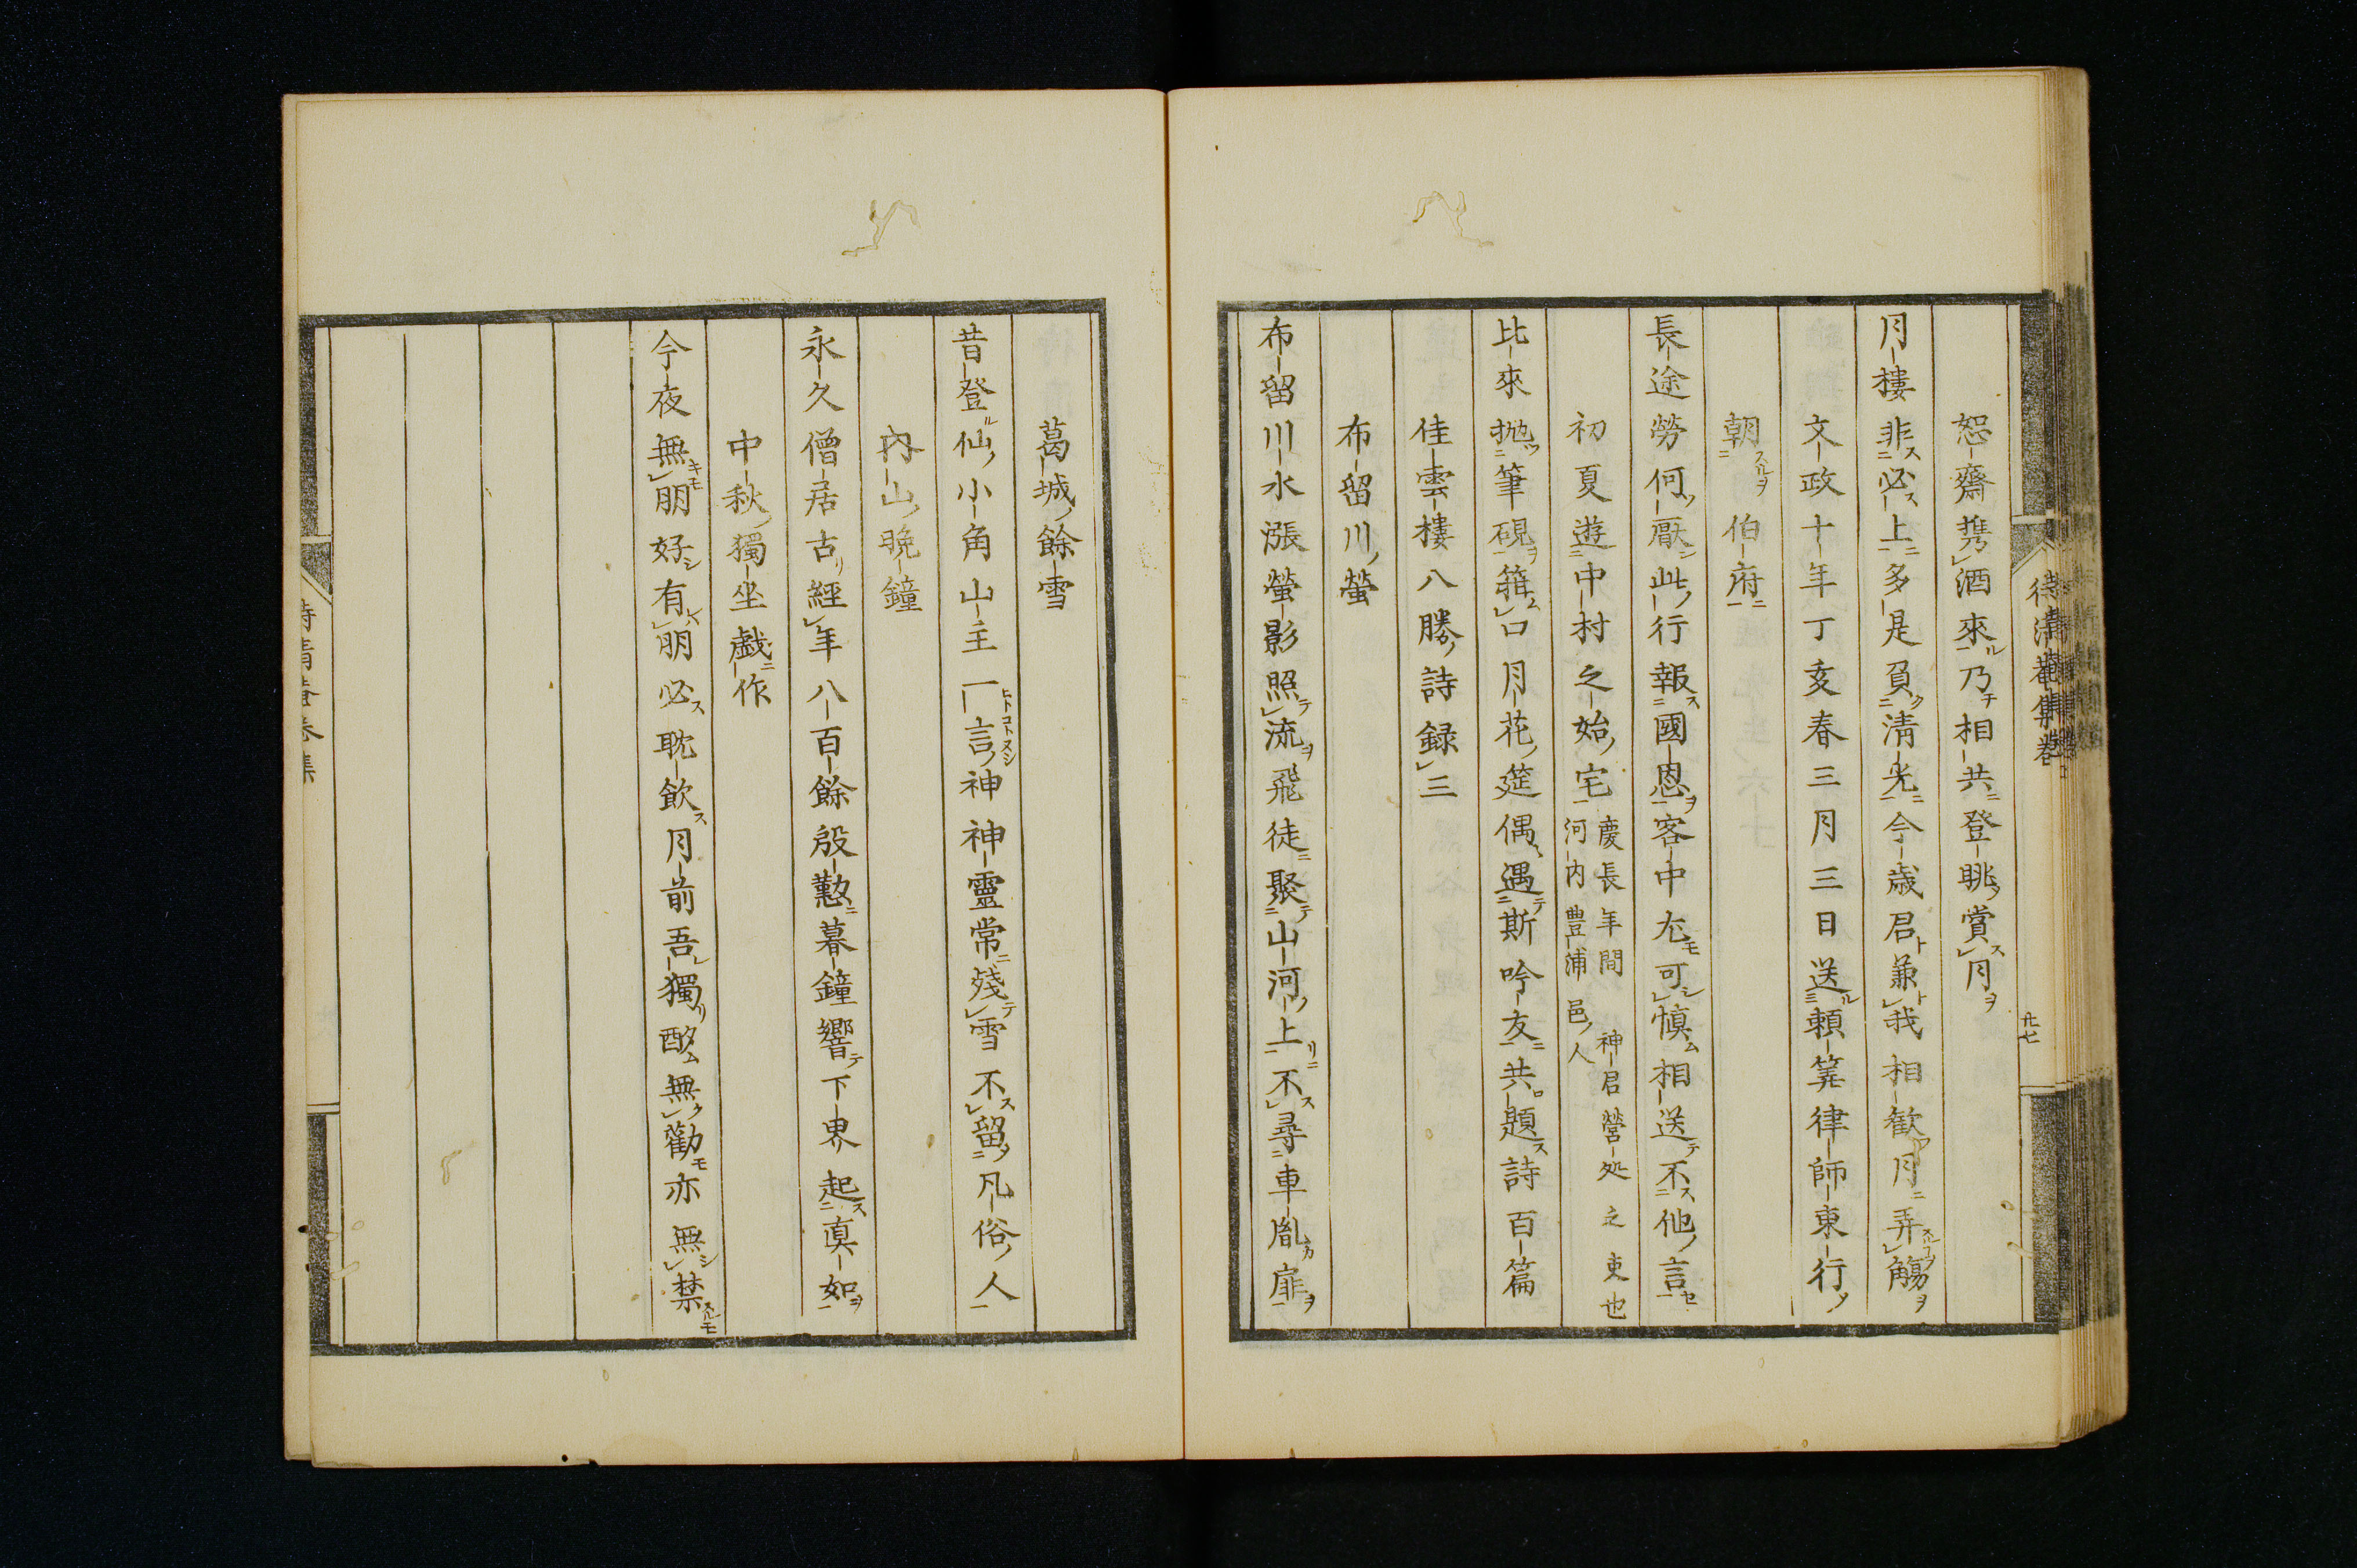 恕齋携酒來乃相共登眺賞月
月樓非必上多是負清光今歳君兼我相歡月弄觴
文政十年丁亥春三月三日送頼筭律師東行
朝伯府
長途勞何厭此行報國恩客中尤可愼相送不他言
初夏遊中村之始宅
慶長年間神君營処之吏也
河内豊浦邑人
比來抛筆硯箝口月花筵偶遇斯吟友共題詩百篇
佳雲樓八勝詩録三
布留川螢
布留川水漲螢影照流飛徒聚山河上不尋車胤扉
葛城餘雪
昔登仙小角山主一言神神靈常殘雪不留凡俗人
内山晩鐘
永久僧居古經年八百餘殷懃暮鐘響下界起眞如
中秋獨坐戯作
今夜無朋好有朋必耽飲月前吾獨酩無勸亦無禁